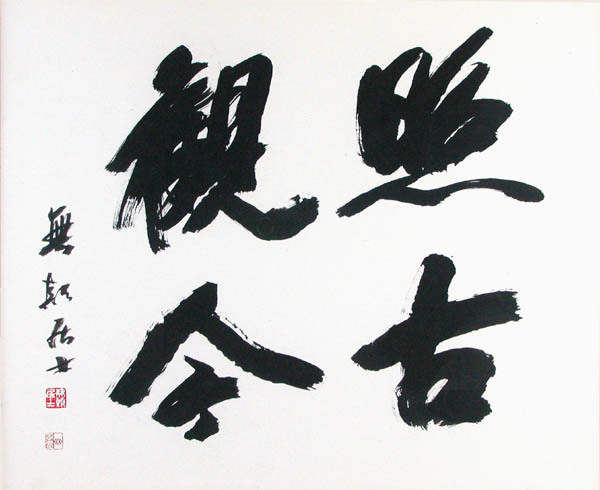 照古
観今
無 居士